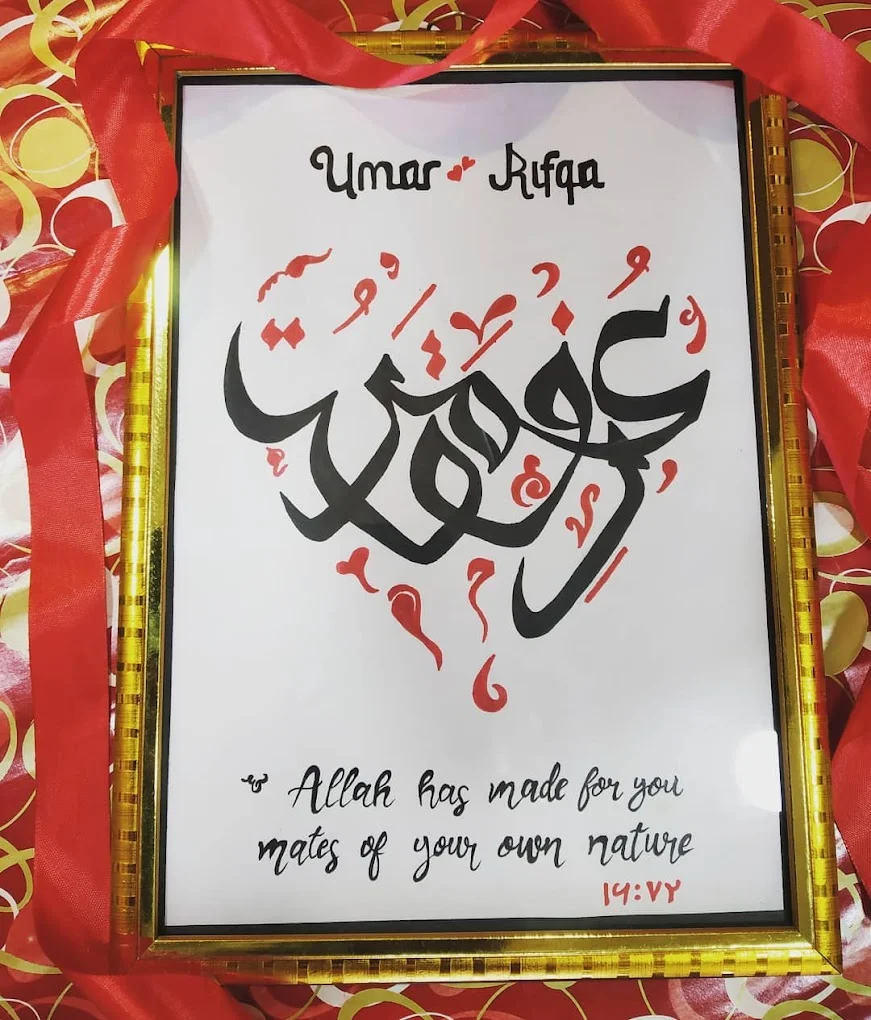 Umar Rifqa
Allah has made for you
mates of your own nature
۱۶:۷۲